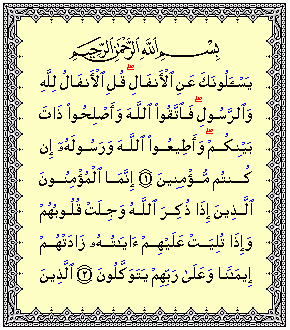 بِسْمِ ٱللَّهِ ٱلرَّحْمَٰنِ ٱلرَّحِيمِ
يَسْـَٔلُونَكَ عَنِ ٱلْأَنفَالِ ۖ قُلِ ٱلْأَنفَالُ لِلَّهِ
وَٱلرَّسُولِ ۖ فَٱتَّقُوا۟ ٱللَّهَ وَأَصْلِحُوا۟ ذَاتَ
بَيْنِكُمْ ۖ وَأَطِيعُوا۟ ٱللَّهَ وَرَسُولَهُۥٓ إِن
كُنتُم مُّؤْمِنِينَ ﴿١﴾ إِنَّمَا ٱلْمُؤْمِنُونَ
ٱلَّذِينَ إِذَا ذُكِرَ ٱللَّهُ وَجِلَتْ قُلُوبُهُمْ
وَإِذَا تُلِيَتْ عَلَيْهِمْ ءَايَٰتُهُۥ زَادَتْهُمْ
إِيمَٰنًا وَعَلَىٰ رَبِّهِمْ يَتَوَكَّلُونَ ﴿٢﴾ ٱلَّذِينَ